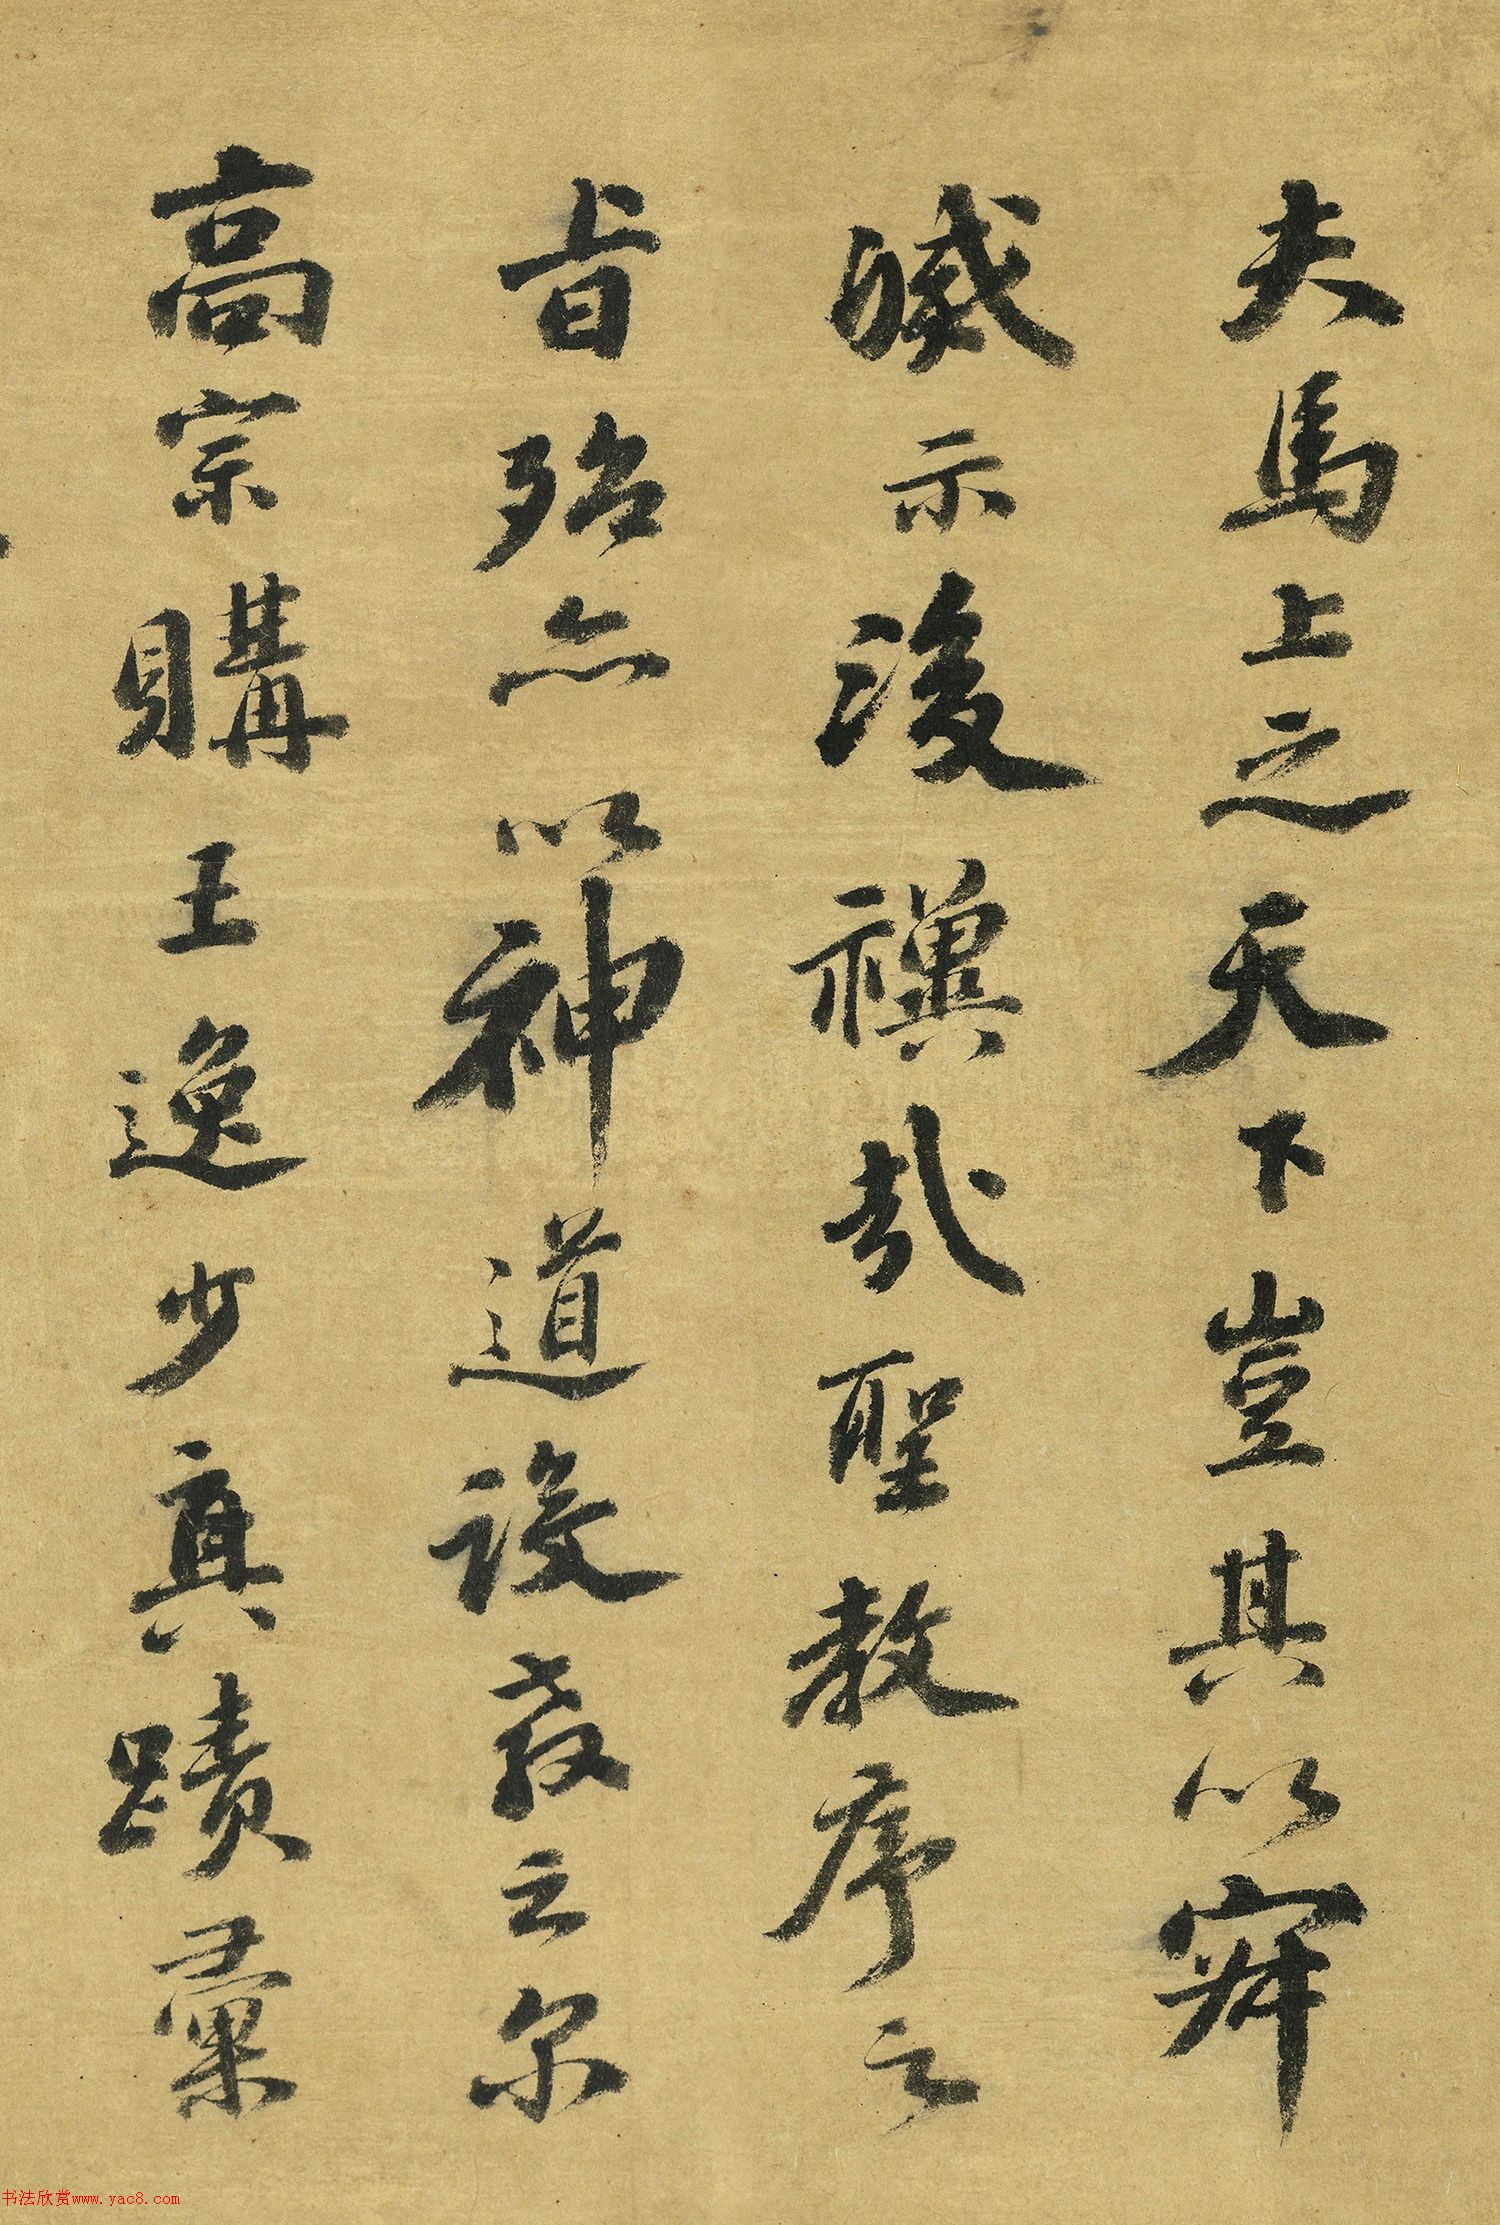 夫馬上之天下豈其以穽
臧示後禩哉聖教序之
旨殆亦以神道設教之尔
高宗購王逸少真蹟彙
书法欣赏www.yac8.com